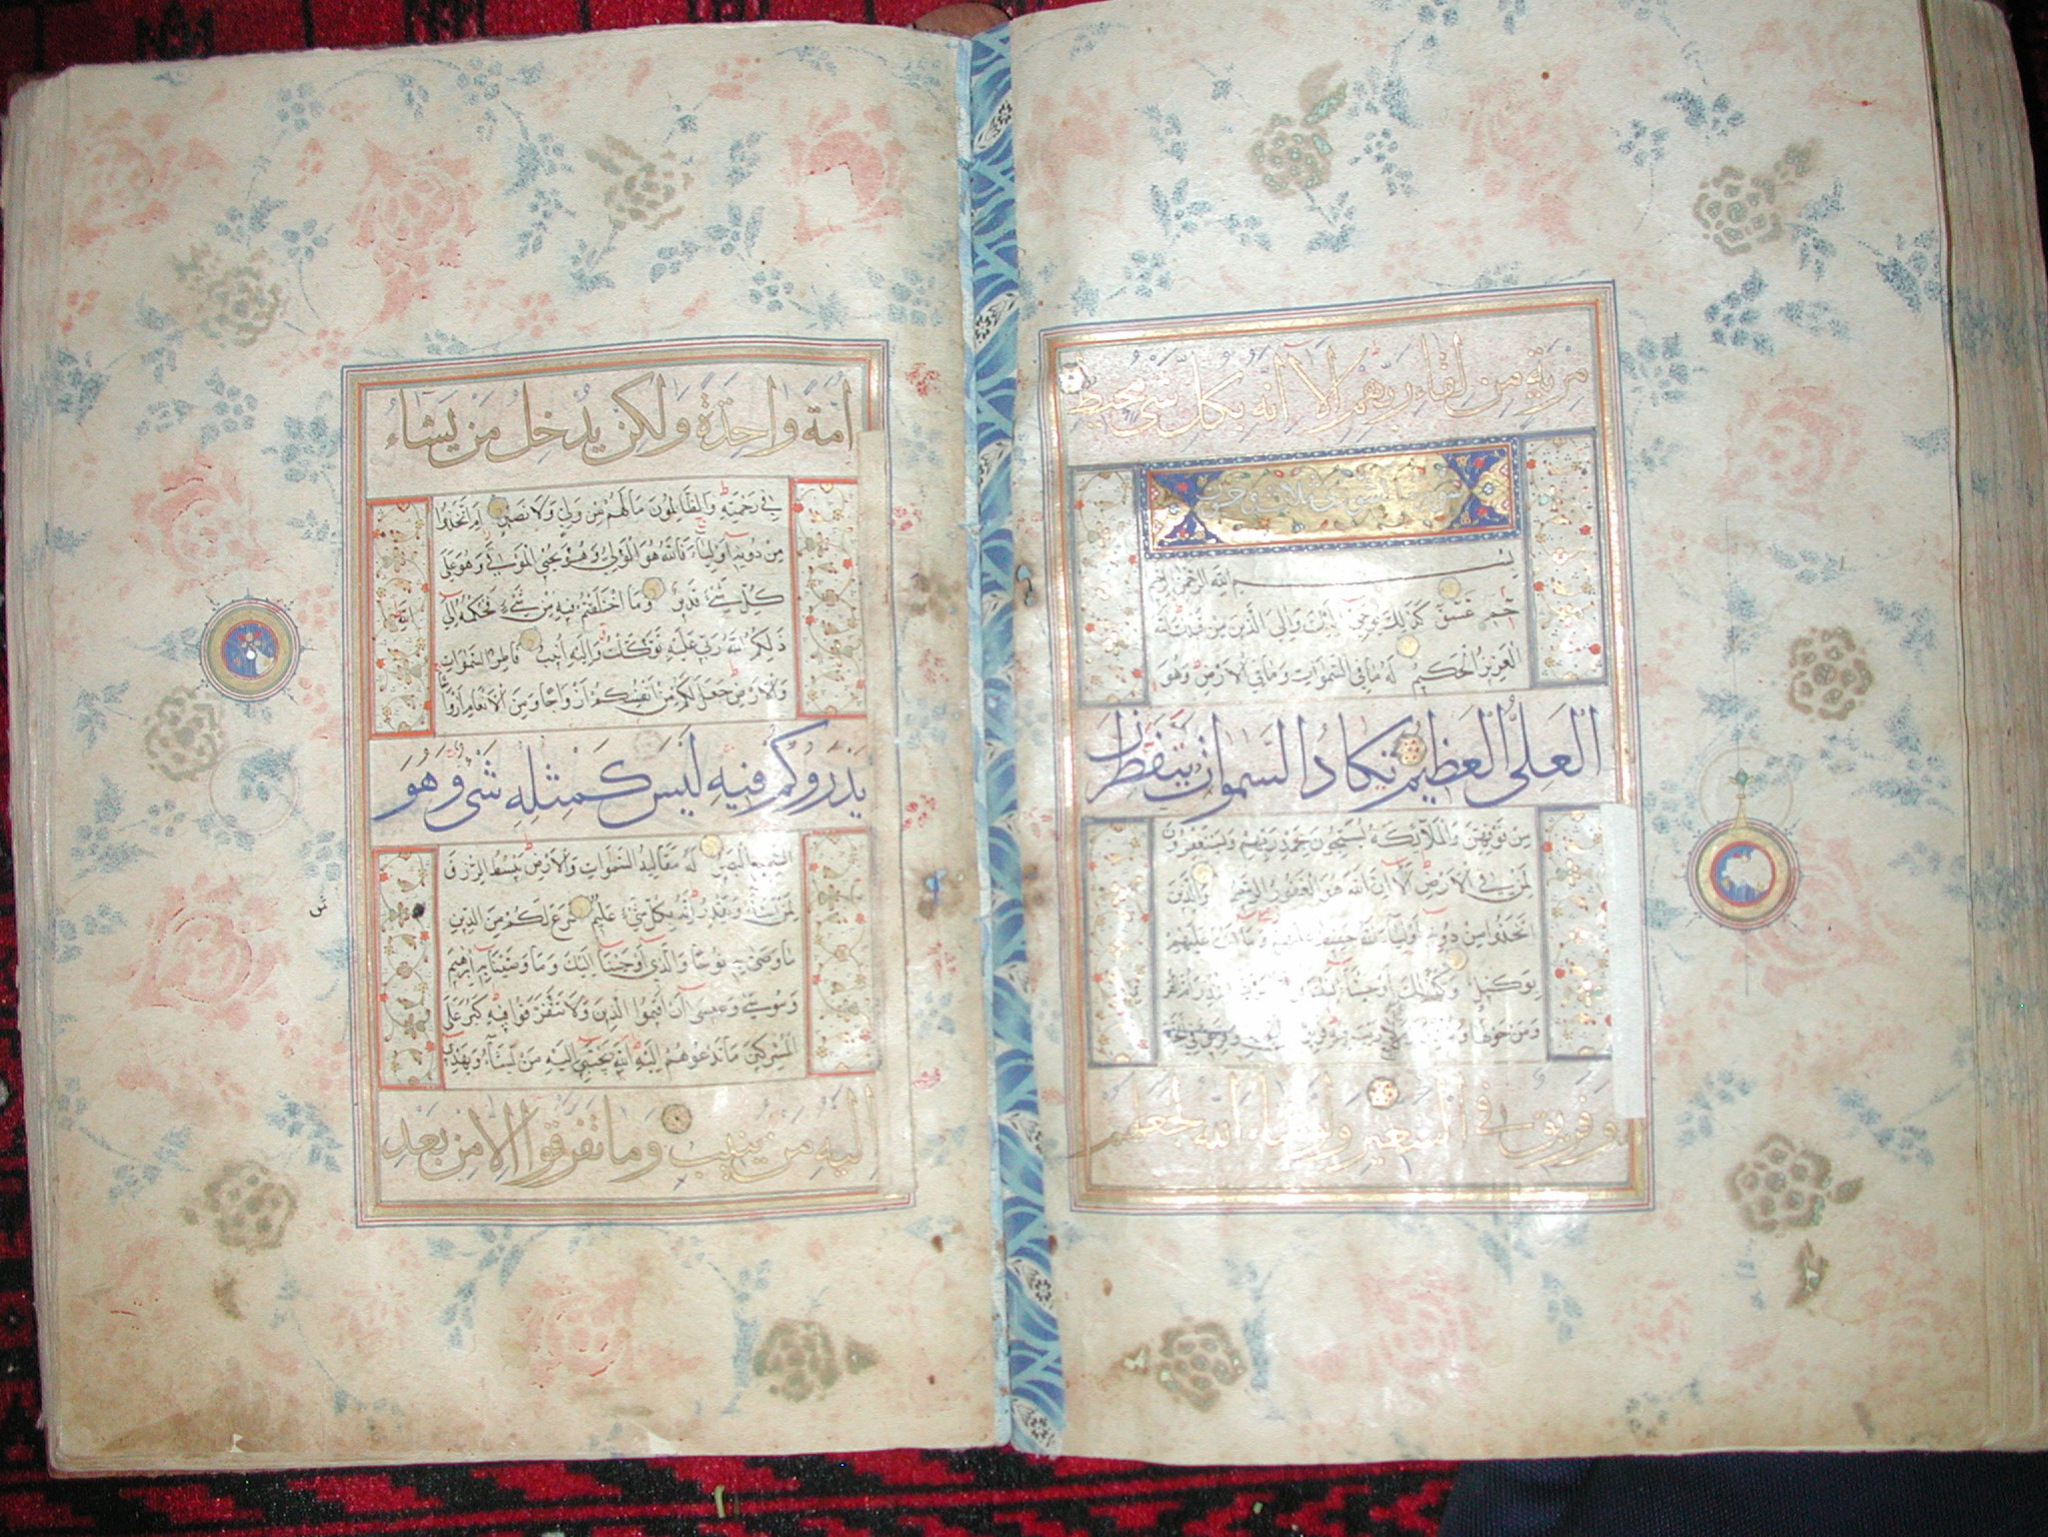 مِرْيَةٍ مِنْ لِقَاءِ رَبِّهِمْ أَلَا إِنَّهُ بِكُلِّ شَيْءٍ مُحِيطٌ
سورة
بسم الله الرحمن الرحيم
حم عسق كذلك يوحي إليك وإلى الذين من قبلك الله
العزيز الحكيم له ما في السموات وما في الأرض وهو
العلي العظيم تكاد السموات يتفطرن
من فوقهن والملائكة يسبحون بحمد ربهم ويستغفرون
لمن في الأرض ألا إن الله هو الغفور الرحيم والذين
اتخذوا من دونه أولياء الله حفيظ عليهم وما أنت عليهم
بوكيل وكذلك أوحينا إليك
ومن حولها وفريق في
وفريق في السعير ولو شاء الله لجعلهم
أمة واحدة ولكن يدخل من يشاء
في رحمته والظالمون ما لهم من ولي ولا نصير أم اتخذوا
من دونه أولياء فالله هو الولي وهو يحيي الموتى وهو على
كل شيء قدير وما اختلفتم فيه من شيء فحكمه إلى الله
ذلكم الله ربي عليه توكلت وإليه أنيب فاطر السموات
والأرض جعل لكم من أنفسكم أزواجا ومن الأنعام أزواجا
يذرؤكم فيه ليس كمثله شيء وهو
السميع البصير له مقاليد السموات والأرض يبسط الرزق
لمن يشاء ويقدر إنه بكل شيء عليم شرع لكم من الدين
ما وصى به نوحا والذي أوحينا إليك وما وصينا به إبراهيم
وموسى وعيسى أن أقيموا الدين ولا تتفرقوا فيه كبر على
المشركين ما تدعوهم إليه الله يجتبي إليه من يشاء ويهدي
إليه من ينيب وما تفرقوا إلا من بعد